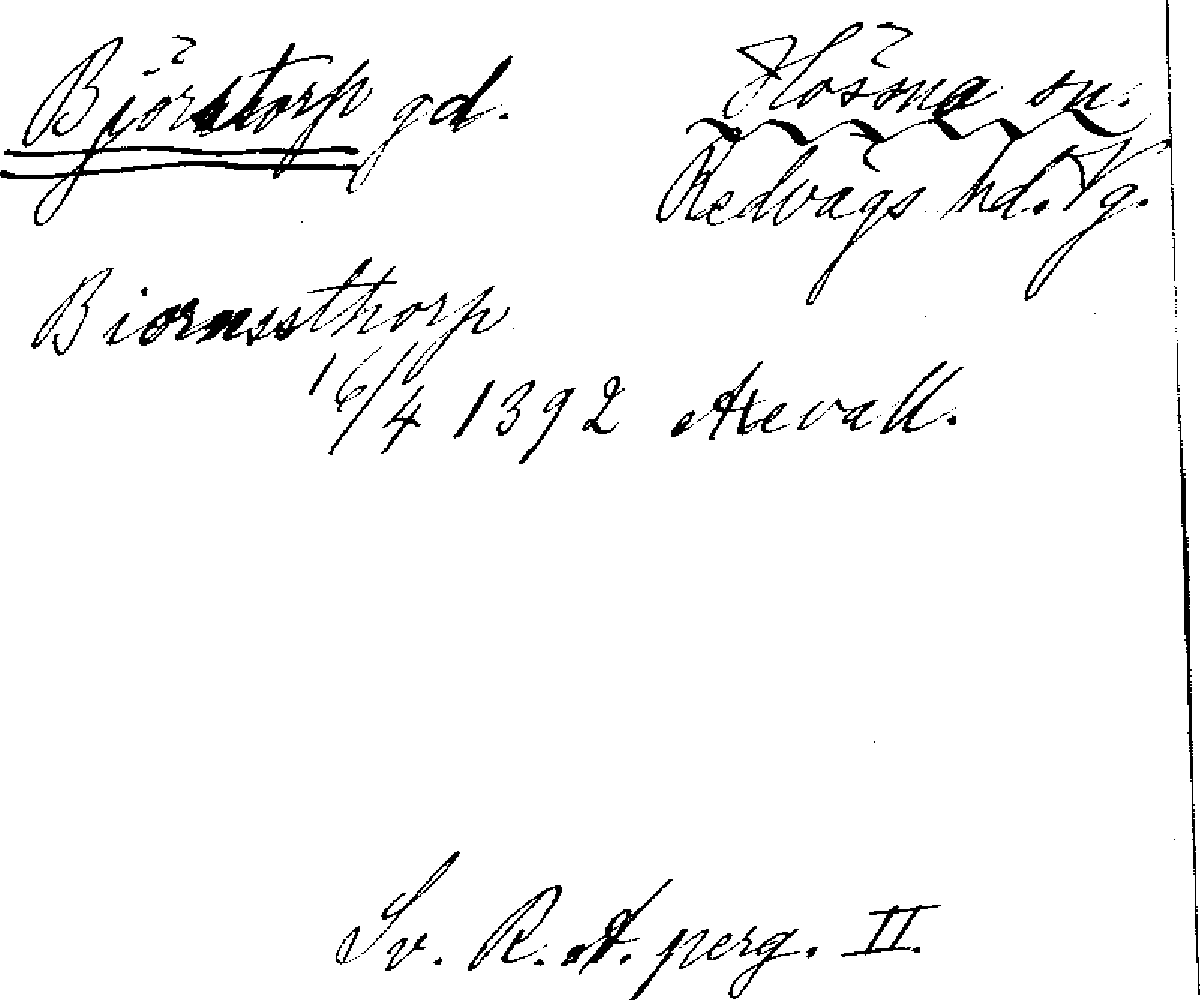 Björstorp gd.
Hössna sn.
Redvägs hd. Vg.
Biornssthorp
16/4 1392 Axevall.
Sv. R. A. perg. II.